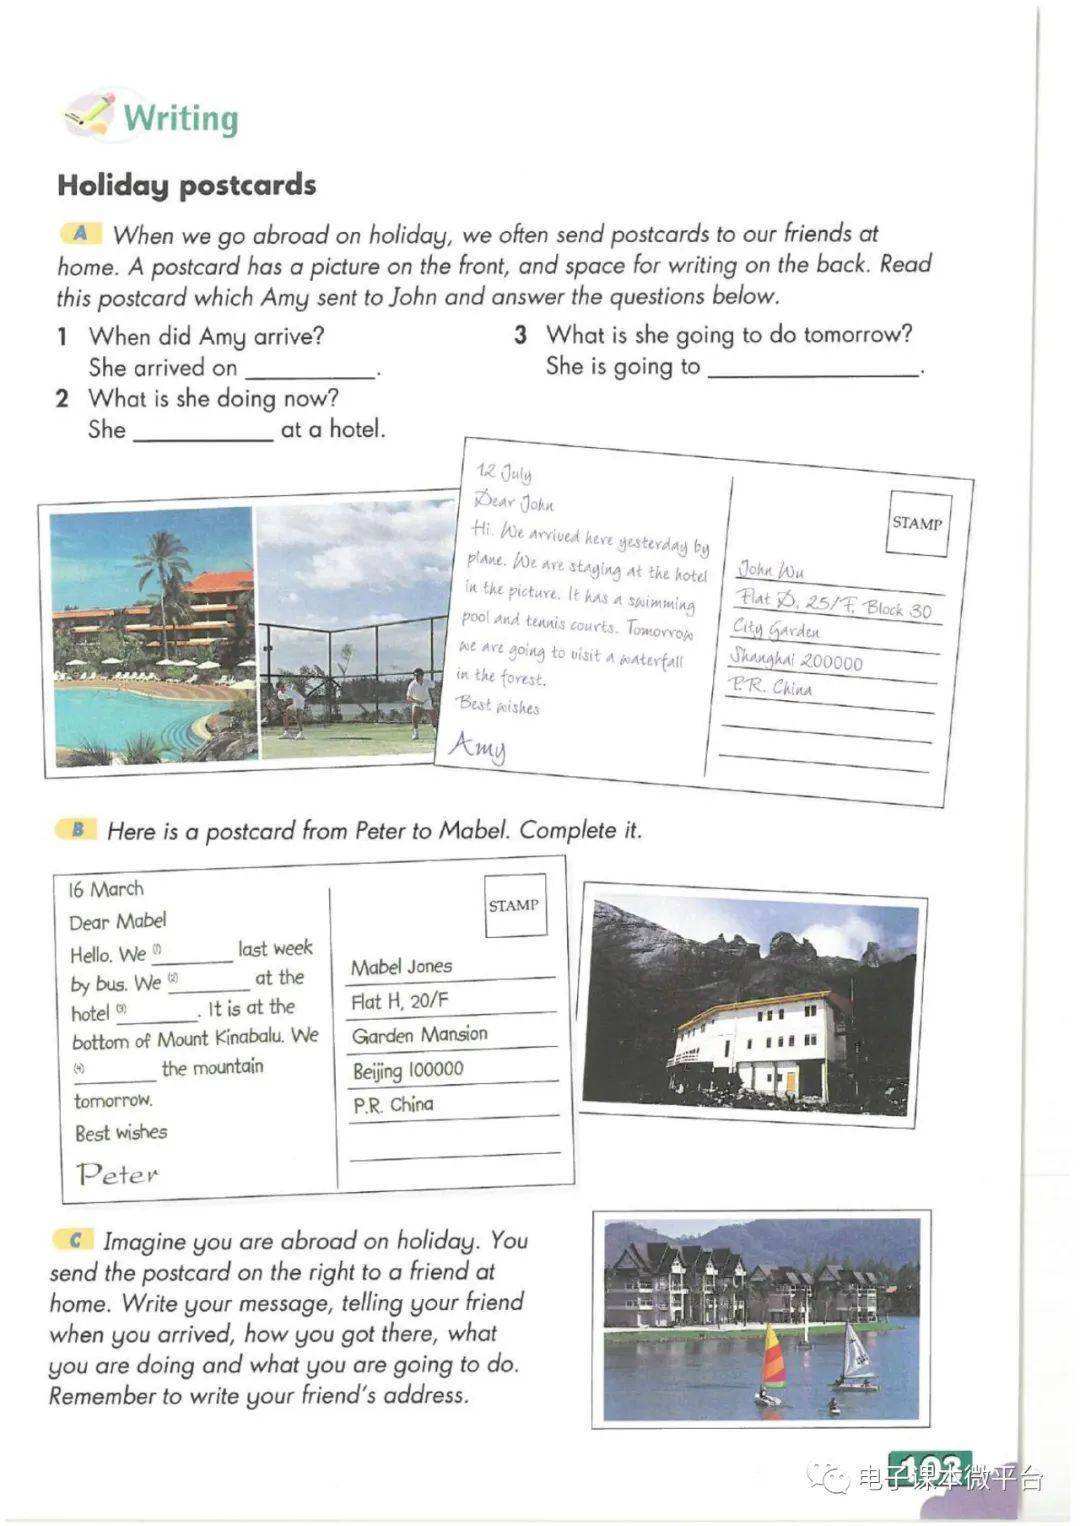 Writing
Holiday postcards
A When we go abroad on holiday, we often send postcards to our friends at
home. A postcard has a picture on the front, and space for writing on the back. Read
this postcard which Amy sent to John and answer the questions below.
1 When did Amy arrive?
She arrived on __________.
2 What is she doing now?
She __________ at a hotel.
3 What is she going to do tomorrow?
She is going to __________.
12 July
Dear John
Hi. We arrived here yesterday by
plane. We are staying at the hotel
in the picture. It has a swimming
pool and tennis courts. Tomorrow
we are going to visit a waterfall
in the forest.
Best wishes
Amy
STAMP
John Wu
Flat D, 25/F, Block 30
City Garden
Shanghai 200000
P.R. China
B Here is a postcard from Peter to Mabel. Complete it.
16 March
Dear Mabel
Hello. We (1) ________ last week
by bus. We (2) ________ at the
hotel (3) ________. It is at the
bottom of Mount Kinabalu. We
(4) ________ the mountain
tomorrow.
Best wishes
Peter
STAMP
Mabel Jones
Flat H, 20/F
Garden Mansion
Beijing 100000
P.R. China
C Imagine you are abroad on holiday. You
send the postcard on the right to a friend at
home. Write your message, telling your friend
when you arrived, how you got there, what
you are doing and what you are going to do.
Remember to write your friend's address.
103
电子课本微平台